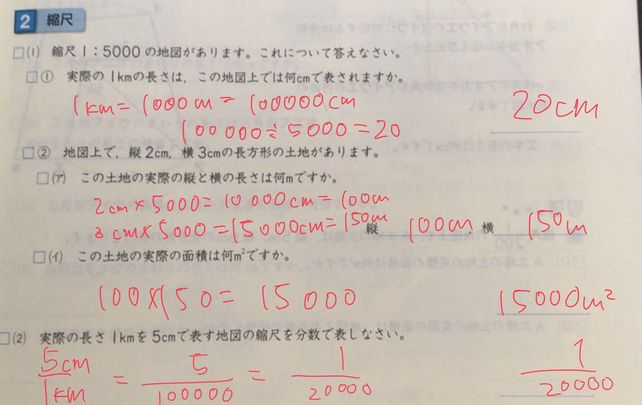 2 縮尺
□(1) 縮尺1:5000の地図があります。これについて答えなさい。
□① 実際の1kmの長さは，この地図上では何cmで表されますか。
1km=1000m=100000cm
20cm
100000÷5000=20
□② 地図上で，縦2cm，横3cmの長方形の土地があります。
□(ア) この土地の実際の縦と横の長さは何mですか。
2cm×5000=10000cm=100m
3cm×5000=15000cm=150m 縦 100m 横 150m
□(イ) この土地の実際の面積は何m²ですか。
100×150=15000 15000m²
□(2) 実際の長さ1kmを5cmで表す地図の縮尺を分数で表しなさい。
5cm/1km = 5/100000 = 1/20000 1/20000